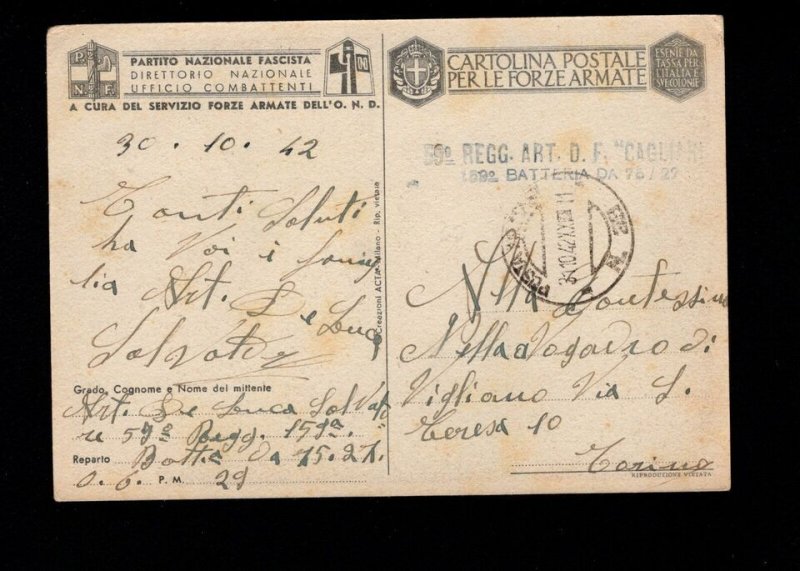 P. N. F.
PARTITO NAZIONALE FASCISTA
DIRETTORIO NAZIONALE
UFFICIO COMBATTENTI
A CURA DEL SERVIZIO FORZE ARMATE DELL'O. N. D.
30 . 10 . 42
Tanti Saluti
ha Voi i famig
lia Art. De Luca
Salvatore
Grado, Cognome e Nome del mittente
Art. De Luca Salvato
re 59ª Regg. 159ª.
Reparto Batt.a Da 75.27.
P. M. 29
Creazioni ACTA - Milano - Rip. vietata
CARTOLINA POSTALE
PER LE FORZE ARMATE
ESENTE DA
TASSA PER
L'ITALIA E
SVE COLONIE
59º REGG. ART. D. F. "CAGLIARI
159ª BATTERIA DA 75/27
POSTA
31.10.42.XXI 11
N.
Alla Contessina
Nella Vogadro di
Vigliano Via S.
Teresa 10
Torino
RIPRODUZIONE VIETATA